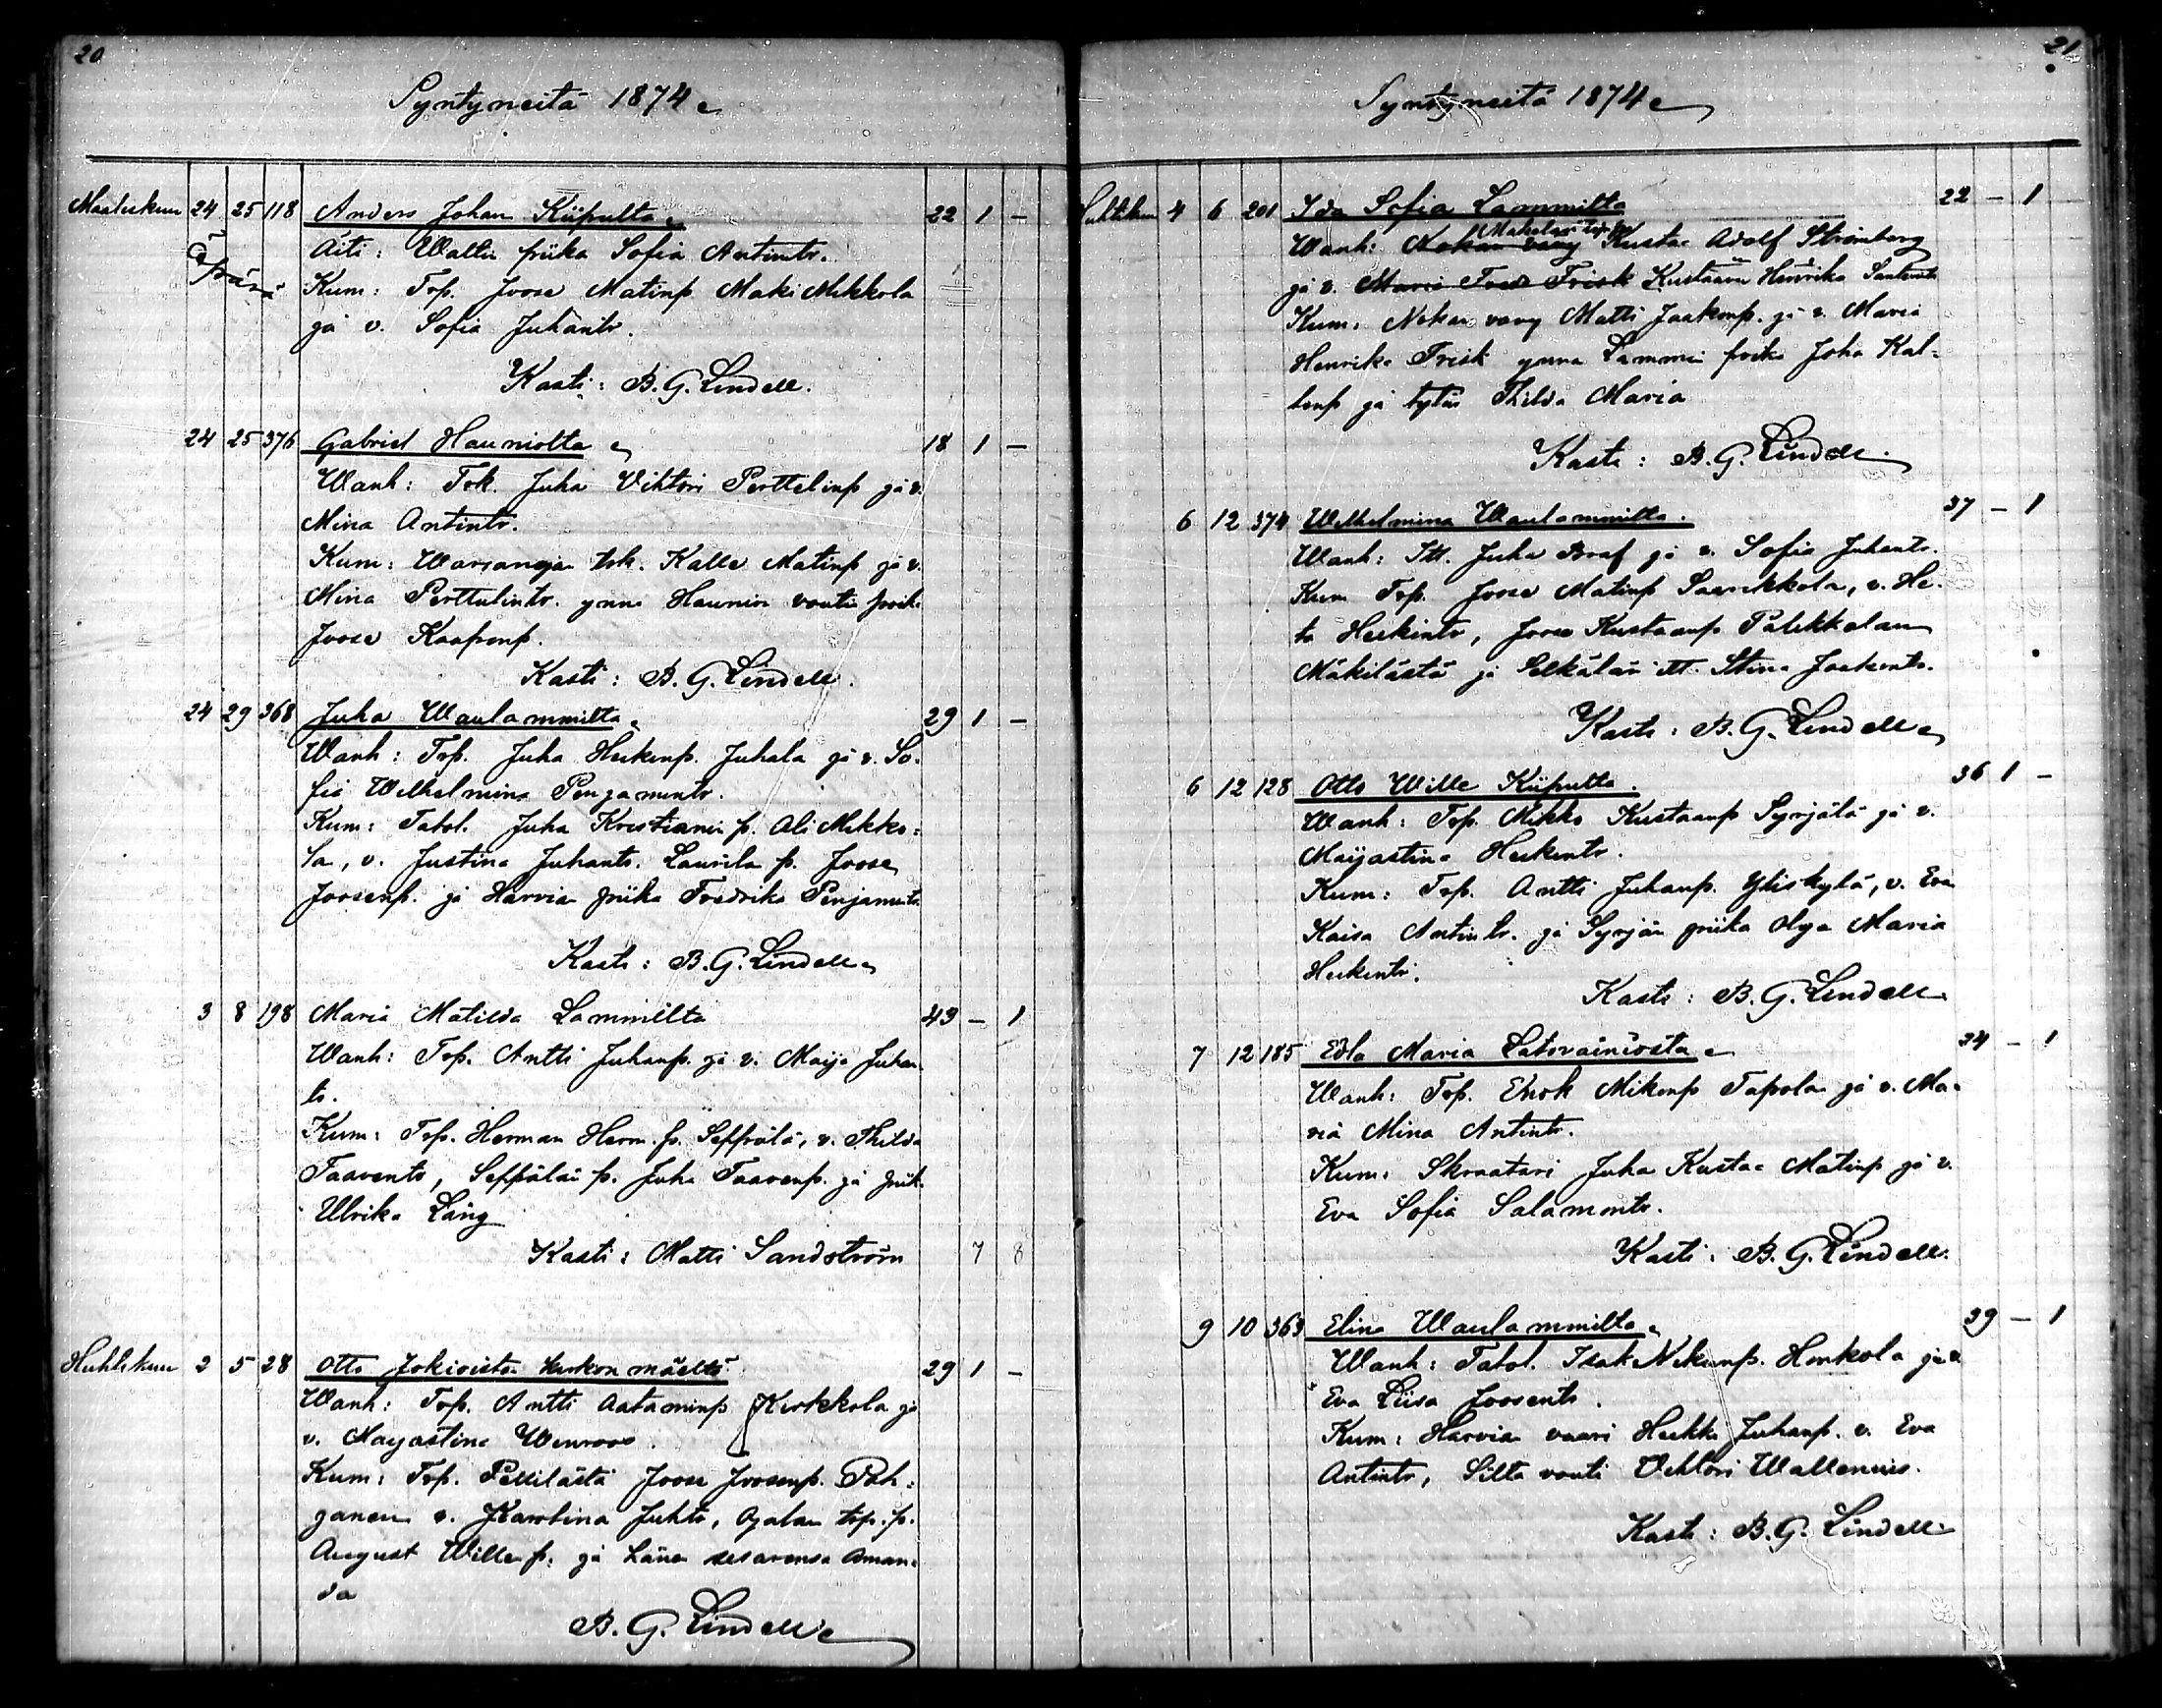 20
Syntyneitä 1874
Maaliskuu 24 25 118 Anders Johan Kiipulta 22 1 -
Äpärä
Äiti: Wallin piika Sofia Antintr.
Kum: Trp. Joose Matinp. Maki Mikkola
ja v. Sofia Juhantr.
Kasti: B. G. Lindell.
24 25 376 Gabriel Hauniolta 18 1 -
Wanh: Tok. Juha Vihtori Perttelinp ja v.
Mina Antintr.
Kum: Warsanojan tok. Kalle Matinp ja v.
Mina Perttulintr. ynnä Haunion voutin poik.
Joose Kaaponp.
Kasti: B. G. Lindell.
24 29 368 Juha Waulammilta 29 1 -
Wanh: Trp. Juha Heikinp. Juhala ja v. So-
fia Wilhelmina Penjamintr.
Kum: Talol. Juha Kristianin p. Ali Mikko-
la, v. Justina Juhantr. Laurila p. Joose
Joosenp. ja Harvian piika Fredrika Penjamintr.
Kasti: B. G. Lindell
3 8 198 Maria Matilda Lammilta 43 - 1
Wanh: Trp. Antti Juhanp. ja v. Maija Juhan-
tr.
Kum: Trp. Herman Herm. p. Seppälä, v. Thilda
Taaventr, Seppälän p. Juha Taavenp. ja piik.
Ulrika Lång
Kasti: Matti Sandström 7 8
Huhtikuu 2 5 28 Otto Jokioista Kirkonmäeltä 29 1 -
Wanh: Trp. Antti Aataminp Kirkkola ja
v. Maijastina Wenroos.
Kum: Trp. Pellilästä Joose Joosenp. Poh-
janen v. Karolina Juhtr, Ojalan trp. p.
August Willen p. ja Länen sisarensa Aman-
da
B. G. Lindell
21
Syntyneitä 1874
Huhtikuu 4 6 201 Ida Sofia Lammilta 22 - 1
Wanh: Nokan vävy Makelan trp. Kustaa Adolf Strömberg
ja v. Maria Fred Frisk Kustaava Henrika Santerintr
Kum: Nokan vävy Matti Jaakonp. ja v. Maria
Henrika Frisk ynnä Lammin poika Joha Kal-
lenp ja tytär Thilda Maria
Kasti: B. G. Lindell.
6 12 374 Wilhelmina Waulammilta. 37 - 1
Wanh: Itl. Juha Braf ja v. Sofia Juhantr.
Kum Trp. Joose Matinp Saarikkola, v. He-
ta Heikintr, Joose Kustaanp. Palikkalan
Mäkilästä ja Selkälän itl. Stina Jaakontr.
Kasti: B. G. Lindell
6 12 128 Otto Wille Kiipulta. 36 1 -
Wanh: Trp. Mikko Kustaanp Syrjälä ja v.
Maijastina Heikintr.
Kum: Trp. Antti Juhanp. Yliskylä, v. Eva
Kaisa Antintr. ja Syrjän piika Olga Maria
Heikintr.
Kasti: B. G. Lindell
7 12 185 Edla Maria Latovainiosta 24 - 1
Wanh: Trp. Enok Mikonp Tapola ja v. Ma-
ria Mina Antintr.
Kum: Skraatari Juha Kustaa Matinp ja v.
Eva Sofia Salamontr.
Kasti: B. G. Lindell.
9 10 363 Elina Waulammilta 39 - 1
Wanh: Talol. Isak Nikunp. Honkola ja v.
Eva Liisa Joosentr.
Kum: Harvian vaari Heikki Juhanp. v. Eva
Antintr, Silta vouti Vihtori Wallenius.
Kasti: B. G. Lindell